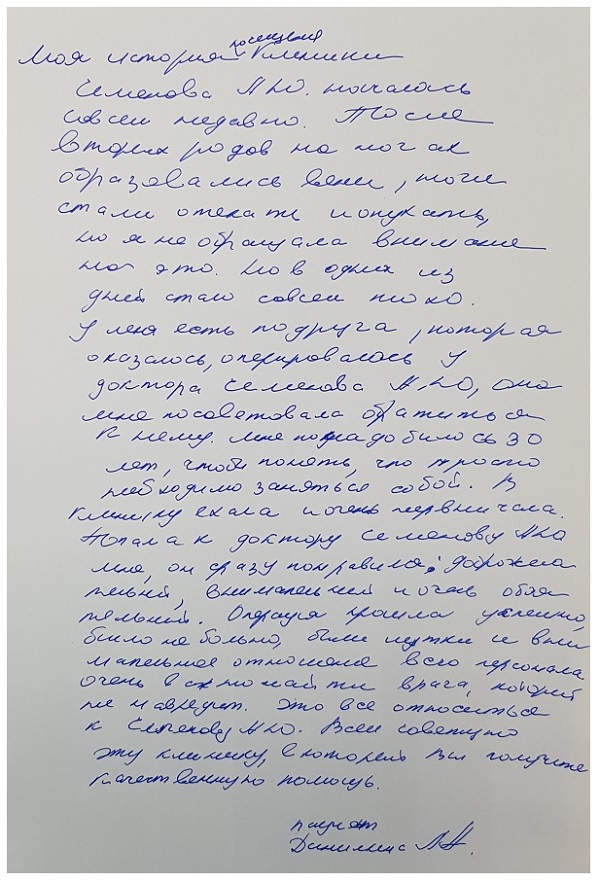 Моя история посещения Клиники
Семенова А.Ю. началось
совсем недавно. После
вторых родов на ногах
образовались вены, ноги
стали отекать и опухать,
но я не обращала внимание
на это. Но в одних из
дней стало совсем плохо.
У меня есть подруга, которая
оказалось, оперировалась у
доктора Семенова А.Ю, она
мне посоветовала обратиться
к нему. Мне понадобилось 30
лет, чтобы понять, что просто
необходимо заняться собой. В
клинику ехала и очень нервничала.
Попала к доктору Семенову А.Ю
мне, он сразу понравился: доброжела
тельный, внимательный и очень обоя
тельный. Операция прошла успешно,
было не больно, были шутки и вни
мательное отношение всего персонала
очень важно найти врача, который
не навредит. Это все относиться
к Семенову А.Ю. Всем советую
эту клинику, в которой Вы получите
качественную помощь.
пациент